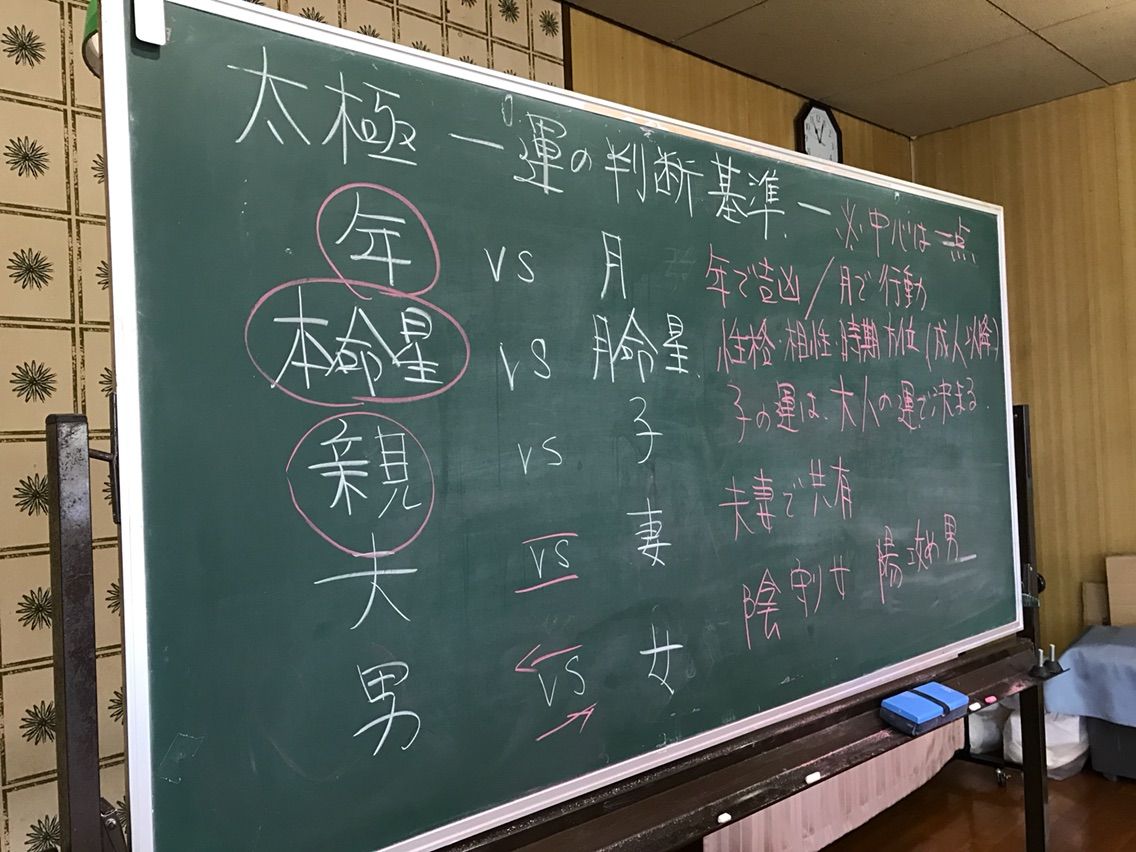 太極 ー運の判断基準ー ※中心は一点
年 vs 月 年で吉凶/月で行動
本命星 vs 月命星 性格・相性・時期 方位(成人以降)
親 vs 子 子の運は、大人の運で決まる。
夫 vs 妻 夫妻で共有
男 vs 女 陰 守り女 陽 攻め男